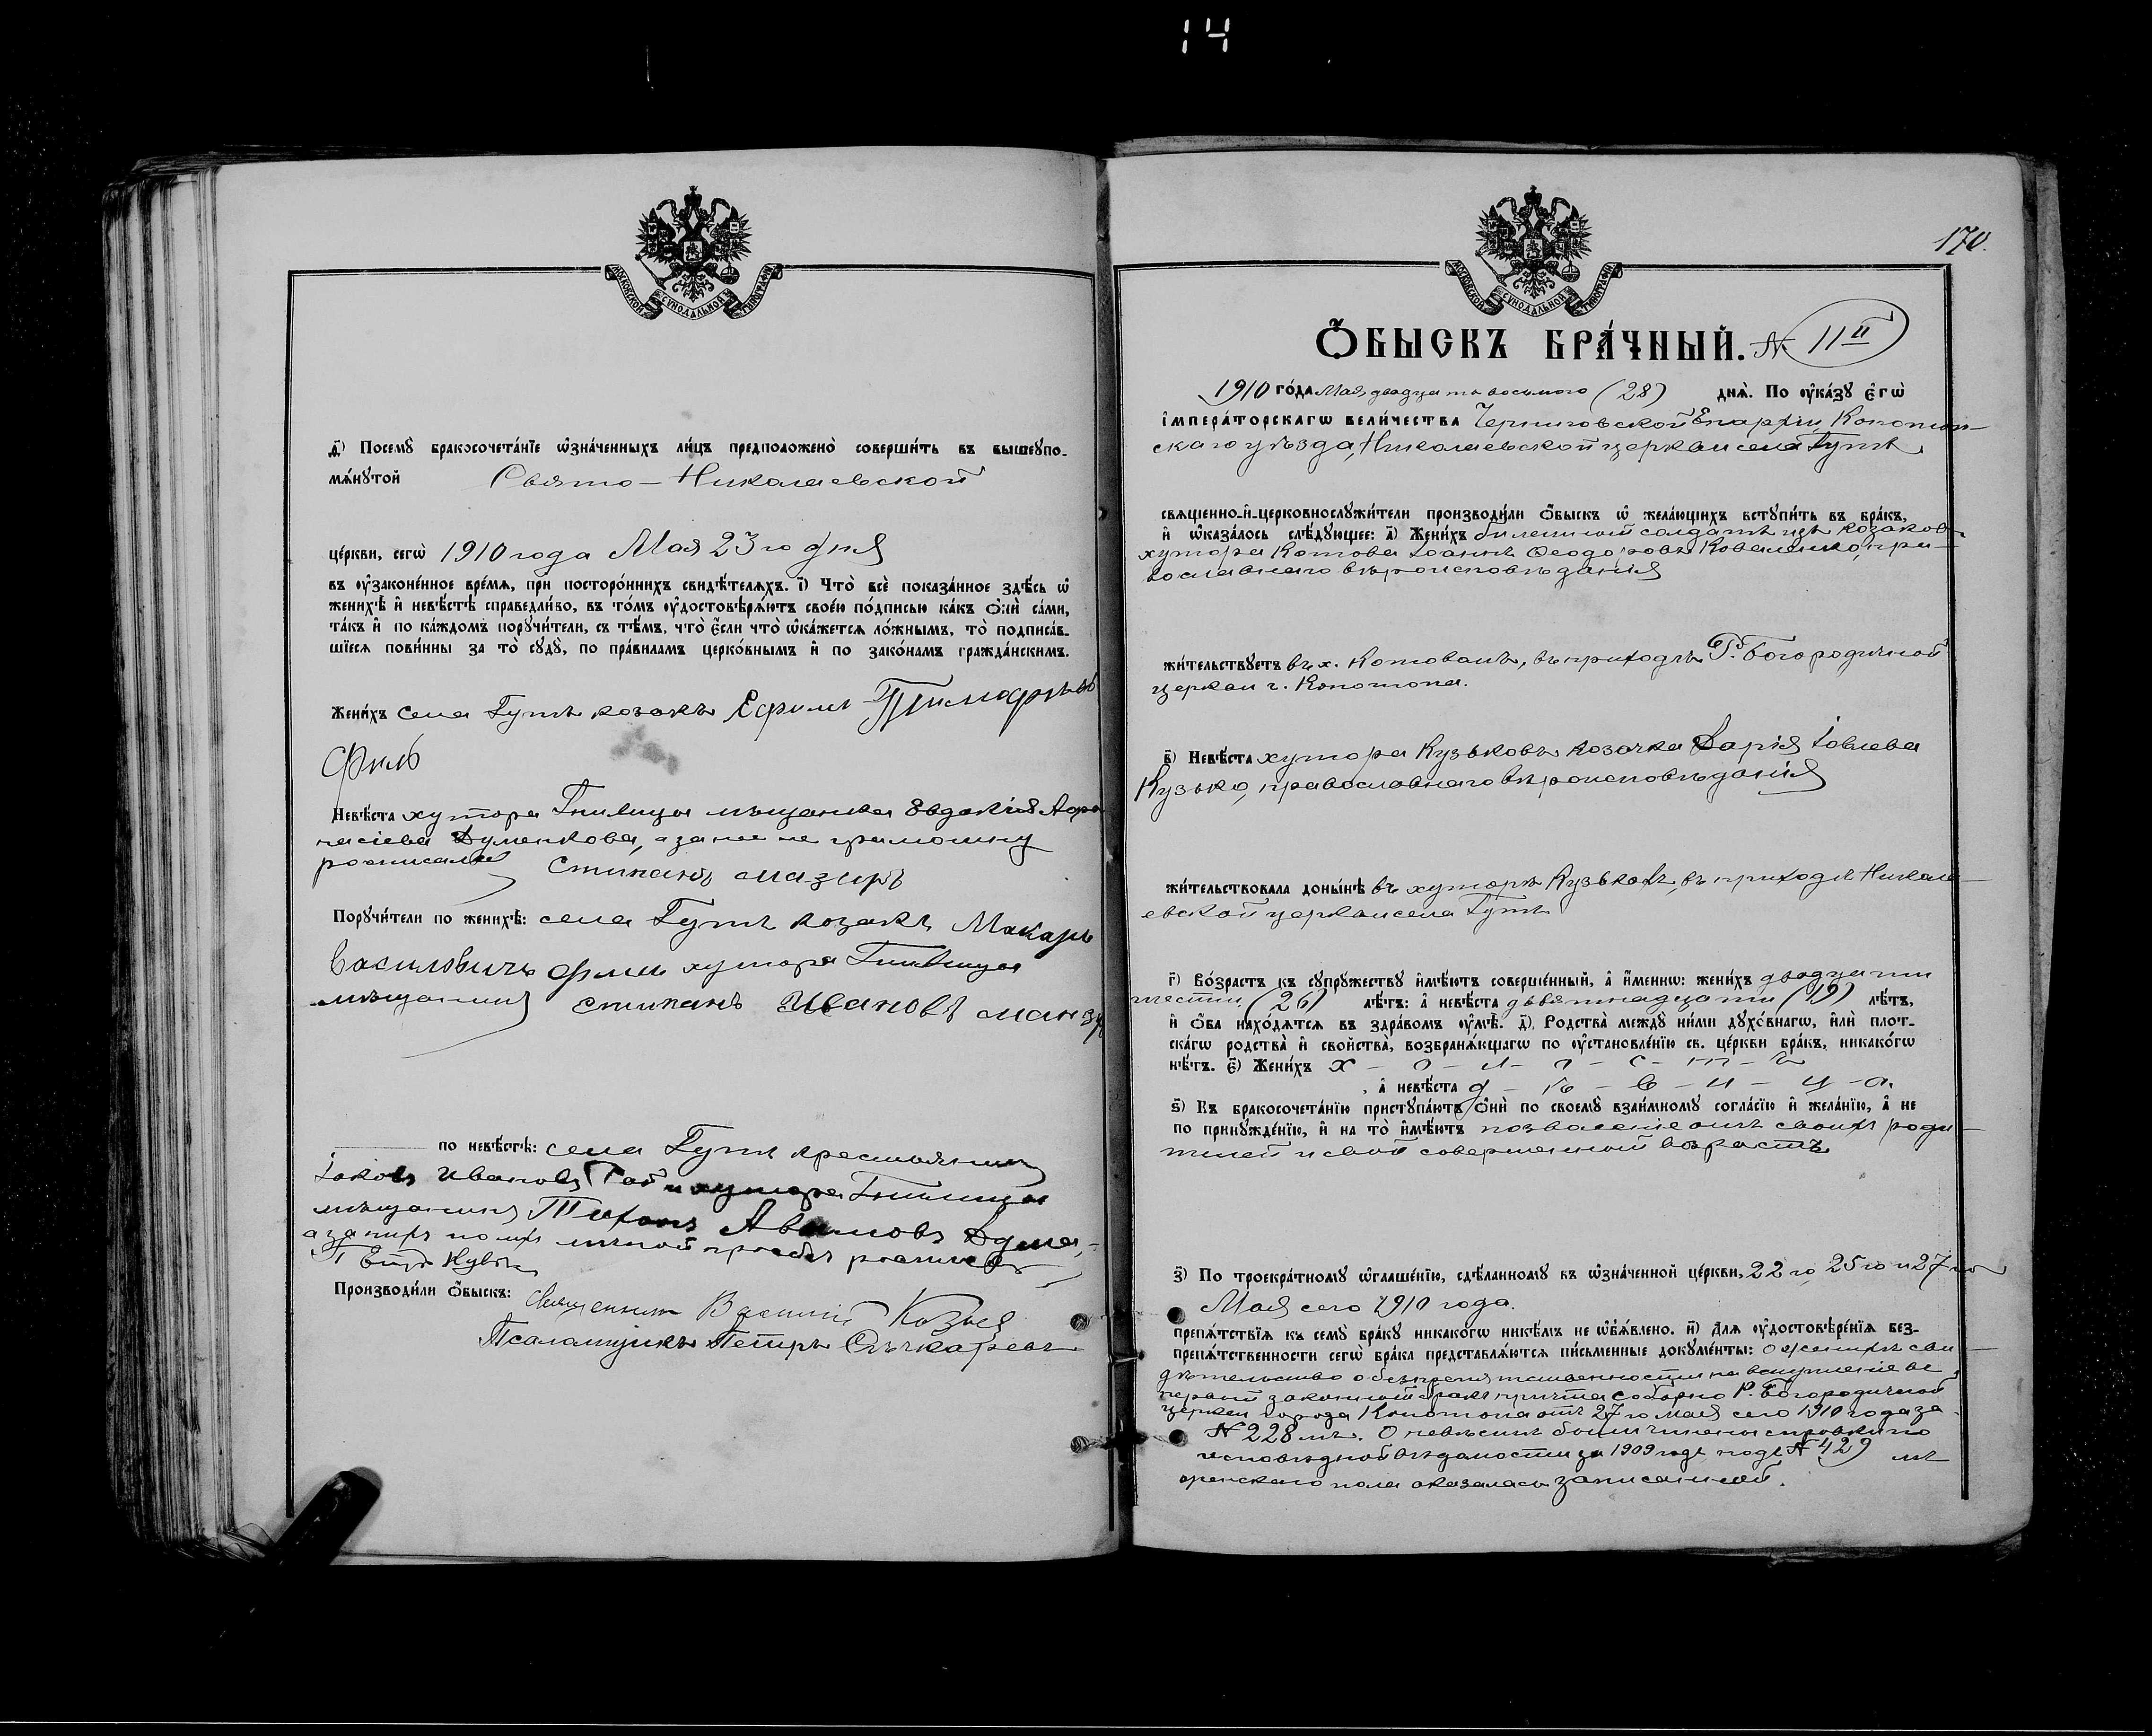 14
МОСКОВСКОЙ СУНОДАЛЬНОЙ ТИПОГРАФІИ
д҃) Посему̀ бракосочета́нїе ѡ҆зна́ченныхъ ли́цъ предположено̀ соверши́ть въ вышеупо-
мѧ́нутой Свято-Николаевской
це́ркви, сегѡ̀ 1910 года Мая 23го дня
въ ᲂу҆законе́нное вре́мѧ, при посторо́ннихъ свидѣ́телѧхъ. і҃) Что̀ всѐ пока́занное здѣ́сь ѡ҆
женихѣ̀ и҆ невѣ́стѣ справедли́во, въ то́мъ ᲂу҆достовѣрѧ́ютъ свое́ю по́дписью ка́къ ѻ҆нѝ са́ми,
та́къ и҆ по ка́ждомъ поручи́тели, съ тѣ́мъ, что̀ є҆́сли что̀ ѡ҆ка́жется ло́жнымъ, то̀ подписа́в-
шїеся пови́нны за то̀ суду̀, по пра́виламъ церко́внымъ и҆ по зако́намъ гражда́нскимъ.
Жени́хъ села Гутъ козакъ Ефимъ Тимофѣевъ
Филь
Невѣ́ста хутора Гнилицы мѣщанка Евдокія Афа
насіева Думенкова, а за нее не грамотну
росписался Стипанъ Мазиръ
Поручи́тели по женихѣ̀: села Гутъ козакъ Макаръ
Василовичъ Филь хутора Гнилицы
мѣщанинъ Стипанъ Ивановъ
по невѣ́стѣ: села Гутъ крестьянинъ
Іаковъ Ивановъ Гай и хутора Гнилицы
мѣщанинъ Тихонъ
а за нихъ по ихъ личной прозьбѣ росписался
Производи́ли ѻ҆́быскъ: Священникъ Василій
Псаломщикъ Петръ
170.
МОСКОВСКОЙ СУНОДАЛЬНОЙ ТИПОГРАФІИ
Ѻ҆́БЫСКЪ БРА́ЧНЫЙ. № 11й
1910 го́да Мая двадцать восьмого (28) днѧ̀. По ᲂу҆ка́зу є҆гѡ̀
і҆мпера́торскагѡ вели́чества Черниговской Епархіи, Конотоп-
скаго уѣзда, Николаевской церкви села Гутъ
свѧще́нно-и҆-церковнослужи́тели производи́ли ѻ҆́быскъ ѡ҆ жела́ющихъ вступи́ть въ бра́къ,
и҆ ѡ҆каза́лось слѣ́дующее: а҃) Жени́хъ билетный солдатъ изъ козаковъ
хутора Котова Іоаннъ Ѳеодоровъ Коваленко, пра-
вославнаго вѣроисповѣданія
жи́тельствуетъ въ х. Котовомъ, въ приходѣ Р. Богородичной
церкви г. Конотопа.
в҃) Невѣ́ста хутора Кузьковъ козачка Дарія Іовлева
Кузько, православнаго вѣроисповѣданія
жи́тельствовала доны́нѣ въ хуторѣ Кузькахъ, въ приходѣ Никола-
евской церкви села Гутъ
г҃) Во́зрастъ къ супру́жеству и҆мѣ́ютъ соверше́нный, а҆ и҆́меннѡ: жени́хъ двадцати
шести (26) лѣ́тъ: а҆ невѣ́ста девятнадцати (19) лѣ́тъ,
и҆ ѻ҆́ба нахо́дѧтсѧ въ здра́вомъ ᲂу҆мѣ̀. д҃) Родства̀ между̀ ни́ми духо́внагѡ, и҆лѝ плот-
ска́гѡ родства̀ и҆ свойства̀, возбранѧ́ющагѡ по ᲂу҆становле́нїю св. це́ркви бра́къ, никако́гѡ
нѣ́тъ. є҃) Жени́хъ х - о - л - о - с - т - ъ
, а҆ невѣ́ста д - ѣ - в - и - ц - а.
ѕ҃) Къ бракосочета́нїю приступа́ютъ ѻ҆нѝ по своему̀ взаи́мному согла́сїю и҆ жела́нїю, а҆ не
по принужде́нїю, и҆ на то̀ и҆мѣ́ютъ позволеніе отъ своихъ роди-
телей и свой совершенный возрастъ
з҃) По троекра́тному ѡ҆глаше́нїю, сдѣ́ланному въ ѡ҆зна́ченной це́ркви, 22го, 25го и 27го
Мая сего 1910 года.
препѧ́тствїѧ къ сему̀ бра́ку никако́гѡ никѣ́мъ не ѡ҆бъѧ́влено. и҃) Для ᲂу҆достовѣре́нїѧ без-
препѧ́тственности сегѡ̀ бра́ка представлѧ́ютсѧ пи́сьменные докуме́нты: о женихѣ сви-
дѣтельство о безпрепятственности на вступленіе во
первый законный бракъ причта соборно Р. Богородичной
церкви города Конотопа отъ 27го мая сего 1910 года за
№ 228мъ. О невѣстѣ были учинены справки по
исповѣдной вѣдомости за 1909 годъ подъ № 429 мъ
женскаго пола оказалась записанной.